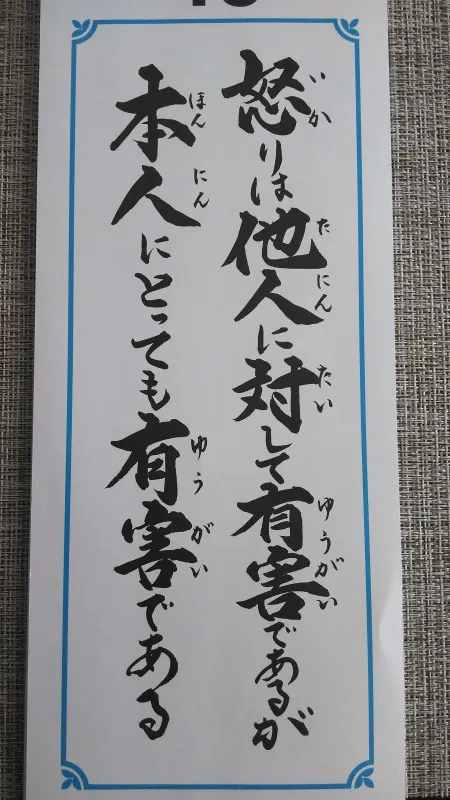 怒りは他人に対して有害であるが
本人にとっても有害である